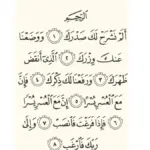 الرَّحِيمِ
أَلَمْ نَشْرَحْ لَكَ صَدْرَكَ ١ وَوَضَعْنَا
عَنكَ وِزْرَكَ ٢ الَّذِي أَنقَضَ
ظَهْرَكَ ٣ وَرَفَعْنَا لَكَ ذِكْرَكَ ٤ فَإِنَّ
مَعَ الْعُسْرِ يُسْرًا ٥ إِنَّ مَعَ الْعُسْرِ يُسْرًا
٦ فَإِذَا فَرَغْتَ فَانصَبْ ٧ وَإِلَىٰ
رَبِّكَ فَارْغَب ٨